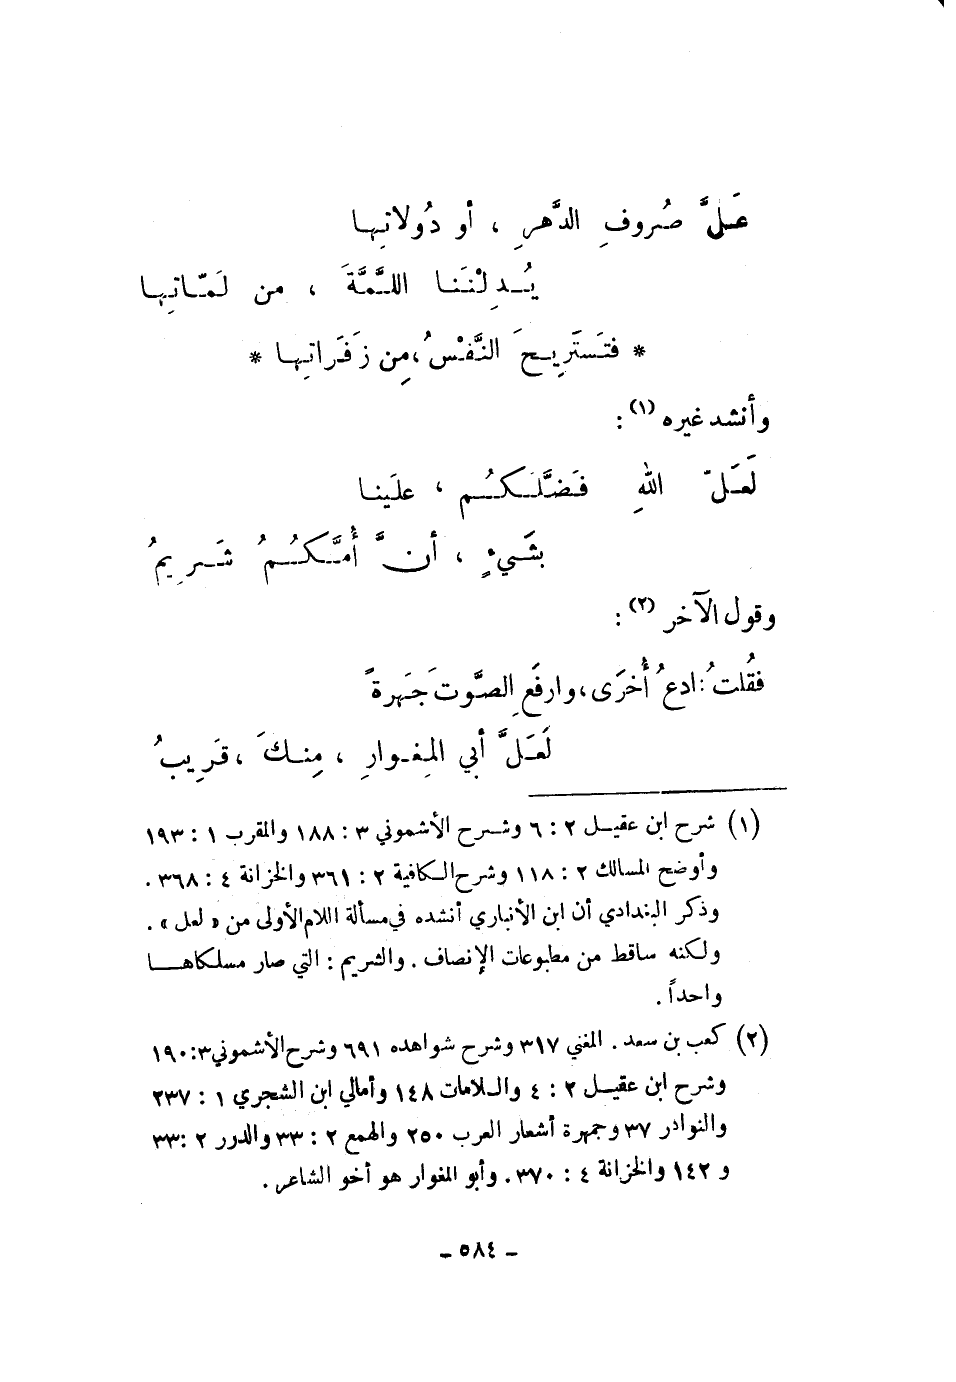 عَلَّ صُروفِ الدَّهرِ ، أو دُولاتِها
يُدِلْنَنا اللَّمَّةَ ، من لَمّاتِها
* فتَستَرِيحَ النَّفْسُ، مِن زَفَراتِها *
وأنشد غيره (١) :
لَعَلّ اللهِ فَضَّلَكُم ، علَينا
بشَيءٍ ، أنَّ أُمَّكُمُ شَرِيمُ
وقول الآخر (٢) :
فقُلتُ: ادعُ أُخرَى، وارفَعِ الصَّوتَ جَهرةً
لَعَلَّ أبي المِغوارِ ، مِنكَ ، قَرِيبُ
(١) شرح ابن عقيل ٢ : ٦ وشرح الأشموني ٣ : ١٨٨ والمقرب ١ : ١٩٣
وأوضح المسالك ٢ : ١١٨ وشرح الكافية ٢ : ٣٦١ والخزانة ٤ : ٣٦٨ .
وذكر البغدادي أن ابن الأنباري أنشده في مسألة اللام الأولى من « لعل » .
ولكنه ساقط من مطبوعات الإنصاف . والشريم : التي صار مسلكاها
واحداً .
(٢) كعب بن سعد . المغني ٣١٧ وشرح شواهده ٦٩١ وشرح الأشموني ٣: ١٩٠
وشرح ابن عقيل ٢ : ٤ واللامات ١٤٨ وأمالي ابن الشجري ١ : ٢٣٧
والنوادر ٣٧ وجمهرة أشعار العرب ٢٥٠ والهمع ٢ : ٣٣ والدرر ٢ :٣٣
و ١٤٢ والخزانة ٤ : ٣٧٠. وأبو المغوار هو أخو الشاعر .
- ٥٨٤ -